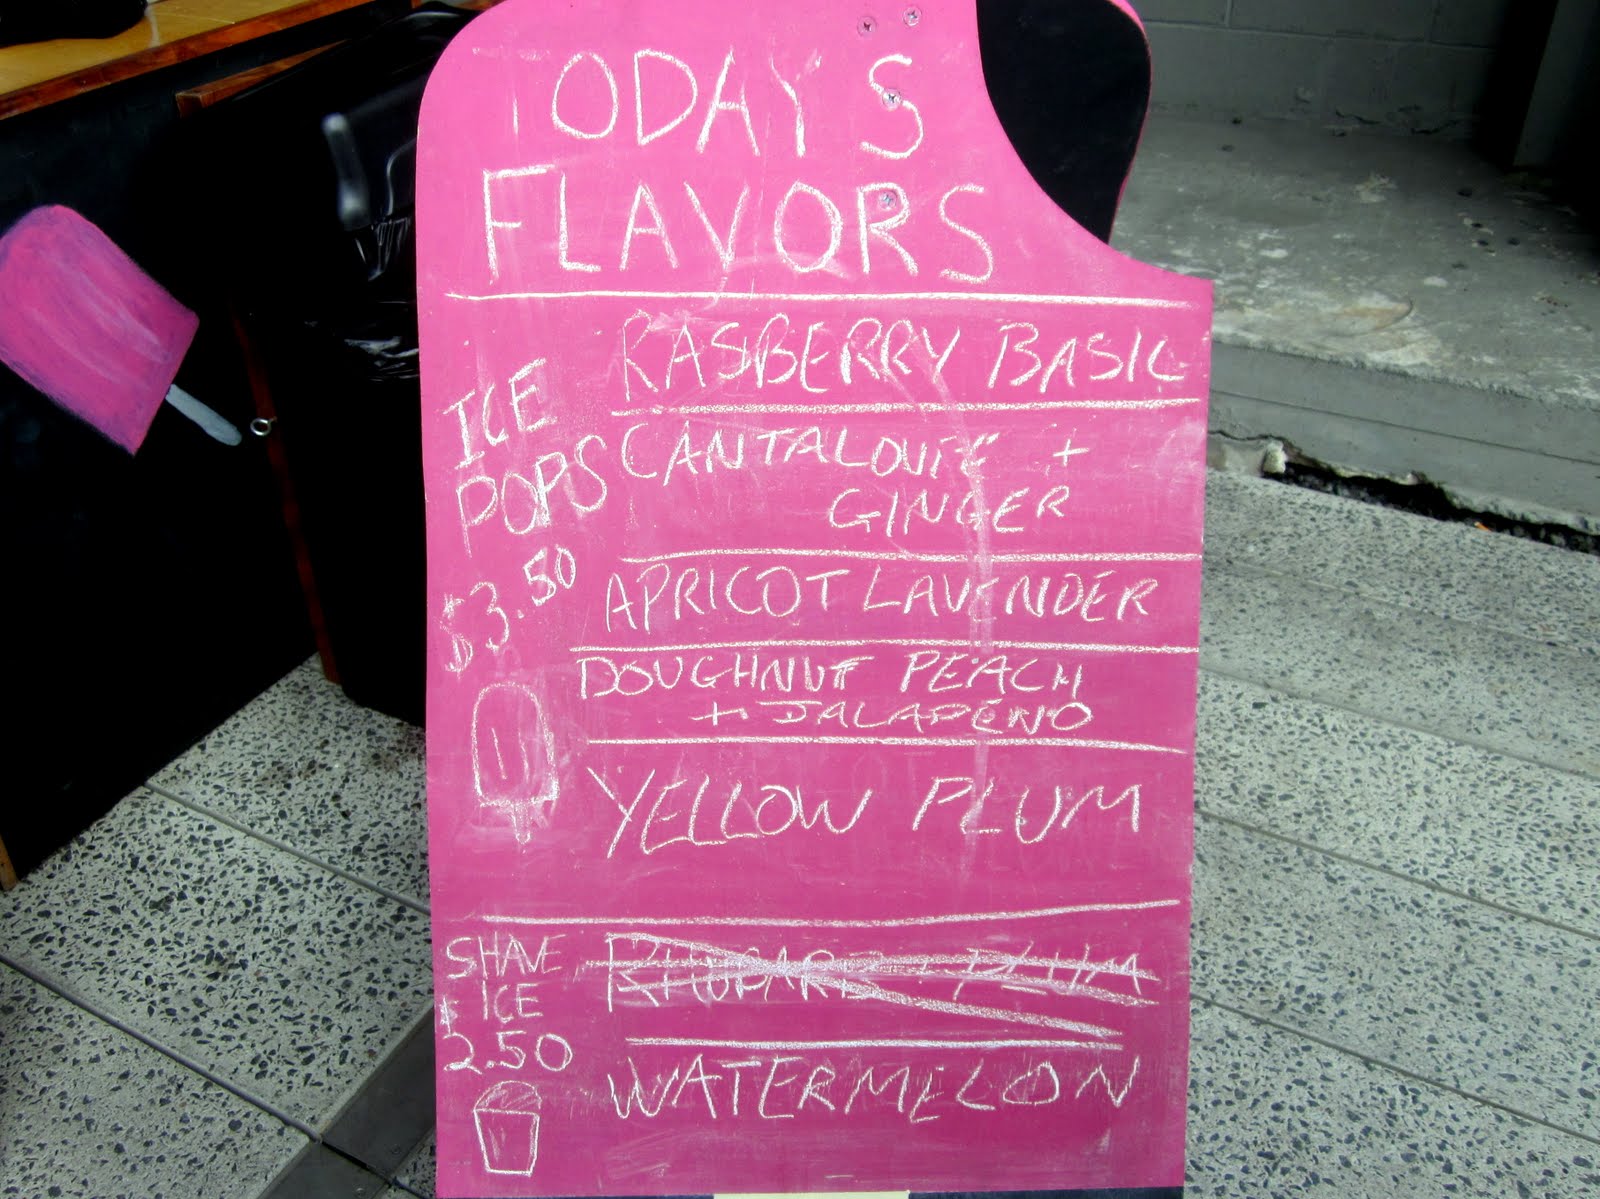 TODAY'S
FLAVORS
ICE
POPS
$3.50
RASBERRY BASIL
CANTALOUPE +
GINGER
APRICOT LAVENDER
DOUGHNUT PEACH
+ JALAPENO
YELLOW PLUM
SHAVE
ICE
$2.50
RHUBARB + PLUM
WATERMELON